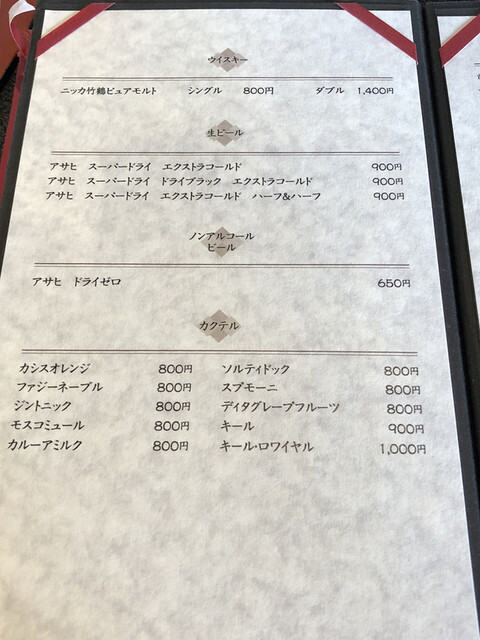 ウイスキー
ニッカ竹鶴ピュアモルト シングル 800円 ダブル 1,400円
生ビール
アサヒ スーパードライ エクストラコールド 900円
アサヒ スーパードライ ドライブラック エクストラコールド 900円
アサヒ スーパードライ エクストラコールド ハーフ&ハーフ 900円
ノンアルコール
ビール
アサヒ ドライゼロ 650円
カクテル
カシスオレンジ 800円 ソルティドック 800円
ファジーネーブル 800円 スプモーニ 800円
ジントニック 800円 ディタグレープフルーツ 800円
モスコミュール 800円 キール 900円
カルーアミルク 800円 キール・ロワイヤル 1,000円